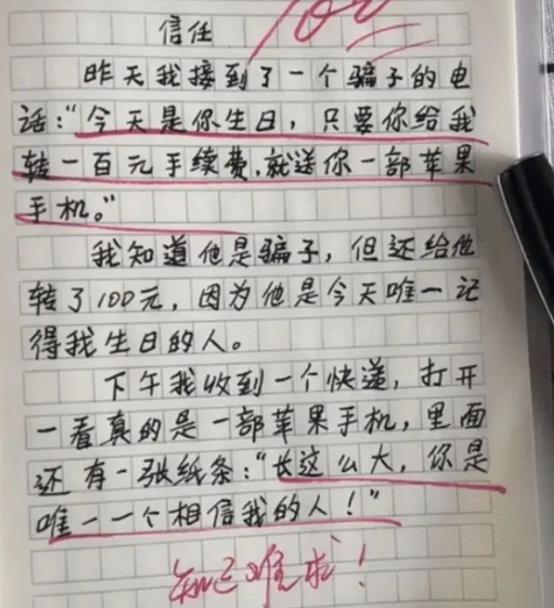 信任
100
昨天我接到了一个骗子的电
话:“今天是你生日,只要你给我
转一百元手续费,就送你一部苹果
手机。”
我知道他是骗子,但还给他
转了100元,因为他是今天唯一记
得我生日的人。
下午我收到一个快递,打开
一看真的是一部苹果手机,里面
还有一张纸条:“长这么大,你是
唯一一个相信我的人!”
知己难求!